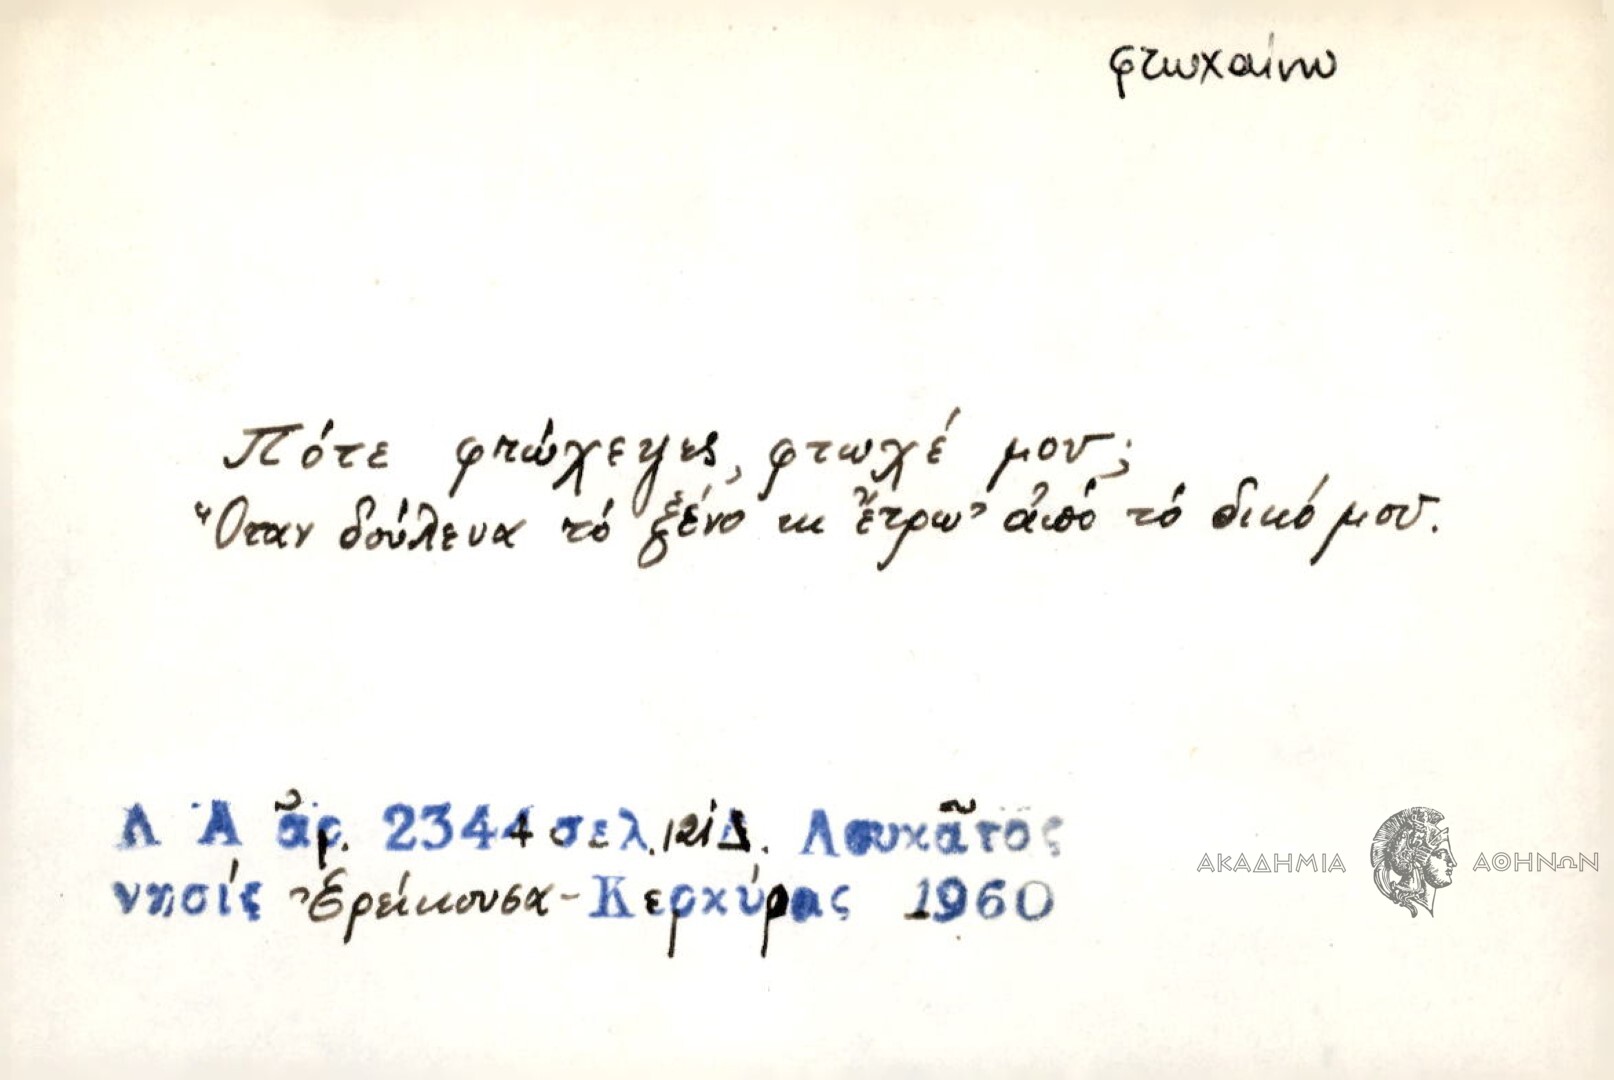 φτωχαίνω
Πότε φτώχεψες, φτωχέ μου;
Ὅταν δούλευα τό ξένο κι ἔτρω' ἀπό τό δικό μου.
Λ Α ἄρ. 2344 σελ. 121 Δ. Λουκᾶτος
νησίς Ἐρείκουσα - Κερκύρας 1960
ΑΚΑΔΗΜΙΑ ΑΘΗΝΩΝ